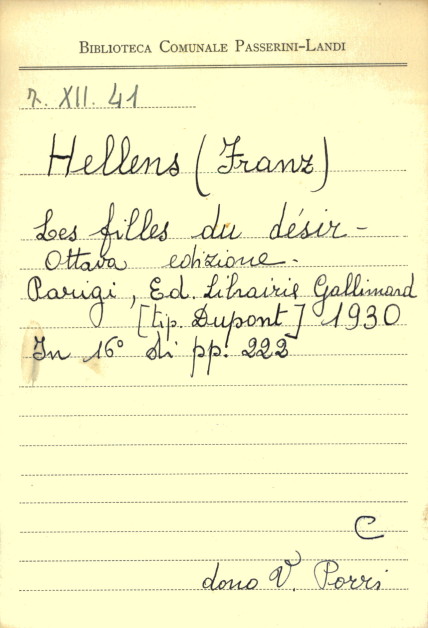 BIBLIOTECA COMUNALE PASSERINI-LANDI
7. XII. 41
Hellens (Franz)
Les filles du désir -
Ottava edizione -
Parigi, Ed. Librairie Gallimard
[tip. Dupont] 1930
In 16° di pp. 222
C
dono V. Porri